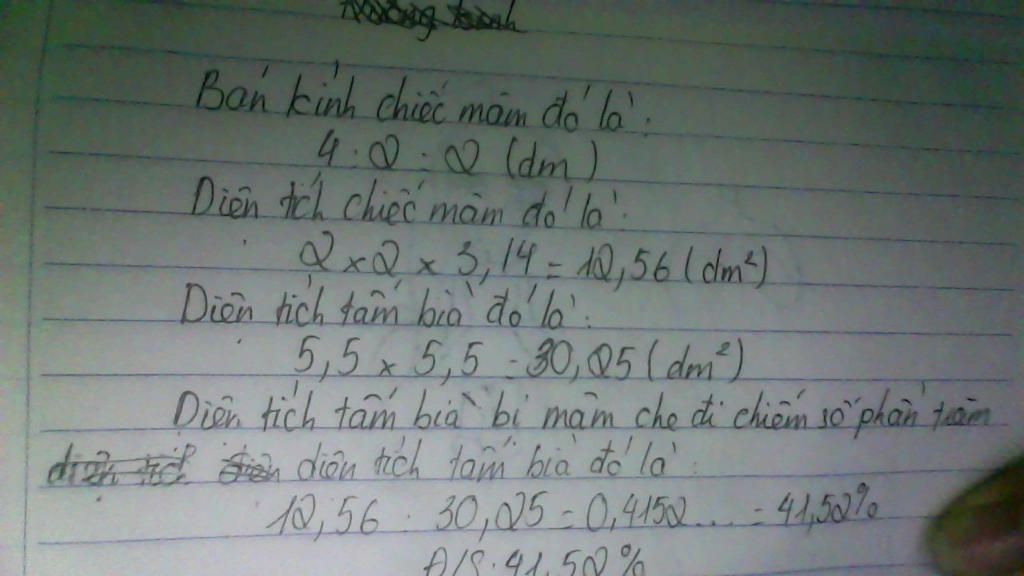 Bán kính chiếc mâm đó là:
4 : 2 = 2 (dm)
Diện tích chiếc mâm đó là:
2 x 2 x 3,14 = 12,56 (dm²)
Diện tích tấm bìa đó là:
5,5 x 5,5 = 30,25 (dm²)
Diện tích tấm bìa bị mâm che đi chiếm số phần trăm
diện tích tấm bìa đó là:
12,56 : 30,25 = 0,4152... = 41,52%
Đ/S: 41,52%